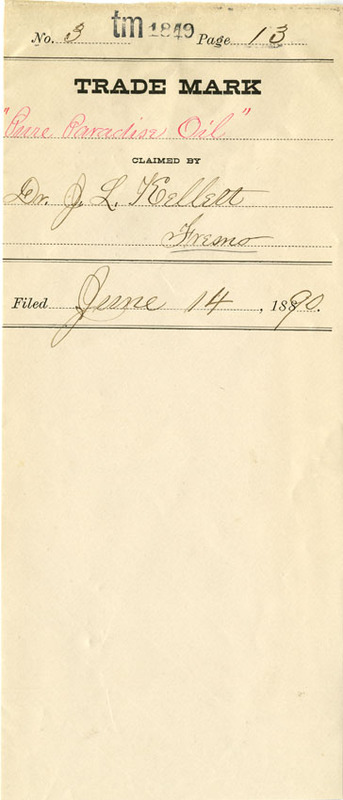 No. 3 tm 1849 Page 13
TRADE MARK
"Pure Paradise Oil"
CLAIMED BY
Dr. J. L. Kellett
Fresno
Filed June 14, 1890.